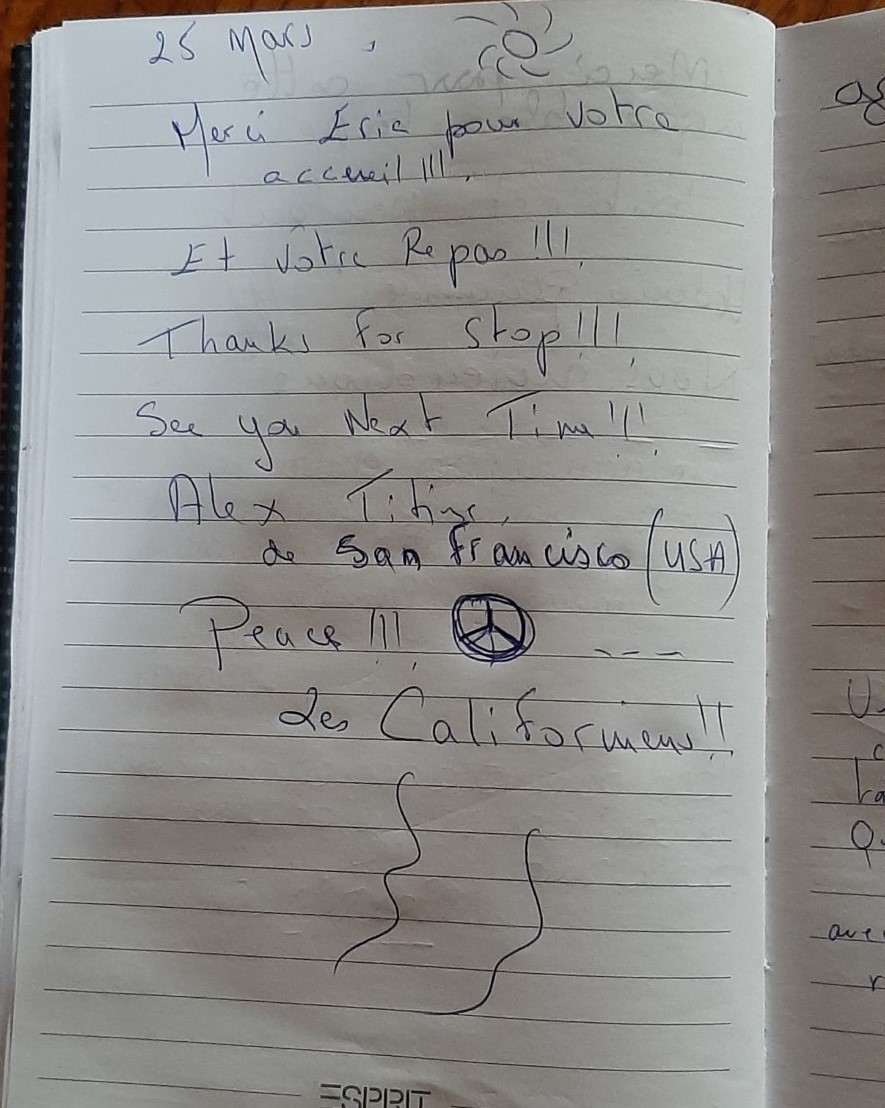 25 Mars.
Merci Eric pour votre
accueil !!!
Et votre Repas !!!
Thanks for stop !!!
See you Next Time !!!
Alex
de San francisco (USA)
Peace !!! ---
Les Californiens !!
ESPRIT